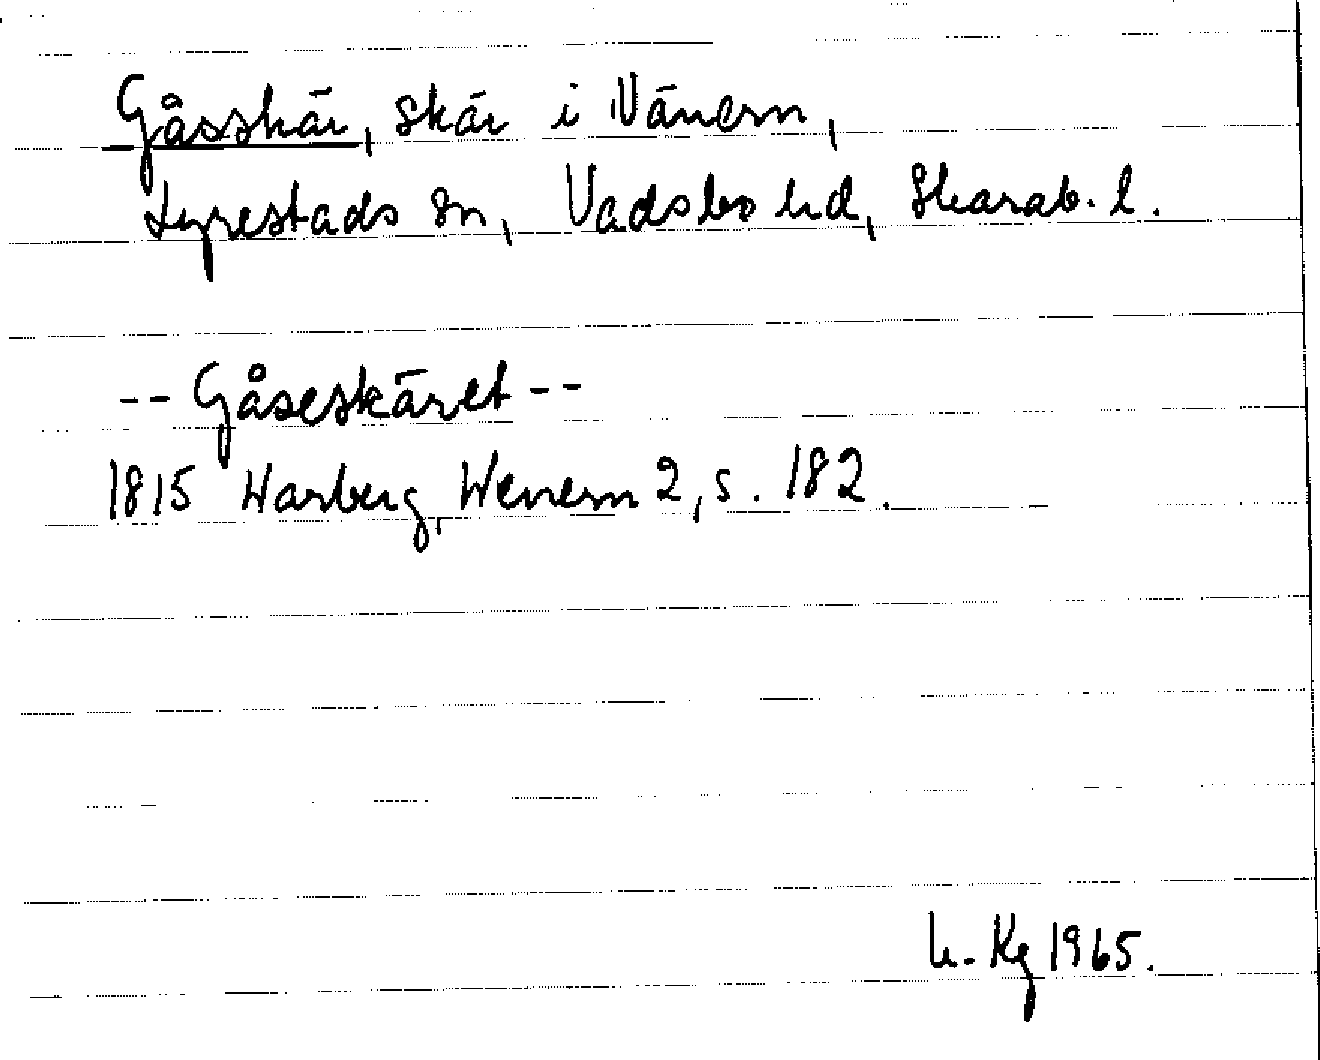 Gåsskär, skär i Vänern,
Lyrestads sn, Vadsbo hd, Skarab. l.
-- Gåseskäret --
1815 Warberg, Wenern 2, s. 182.
h. Kg 1965.